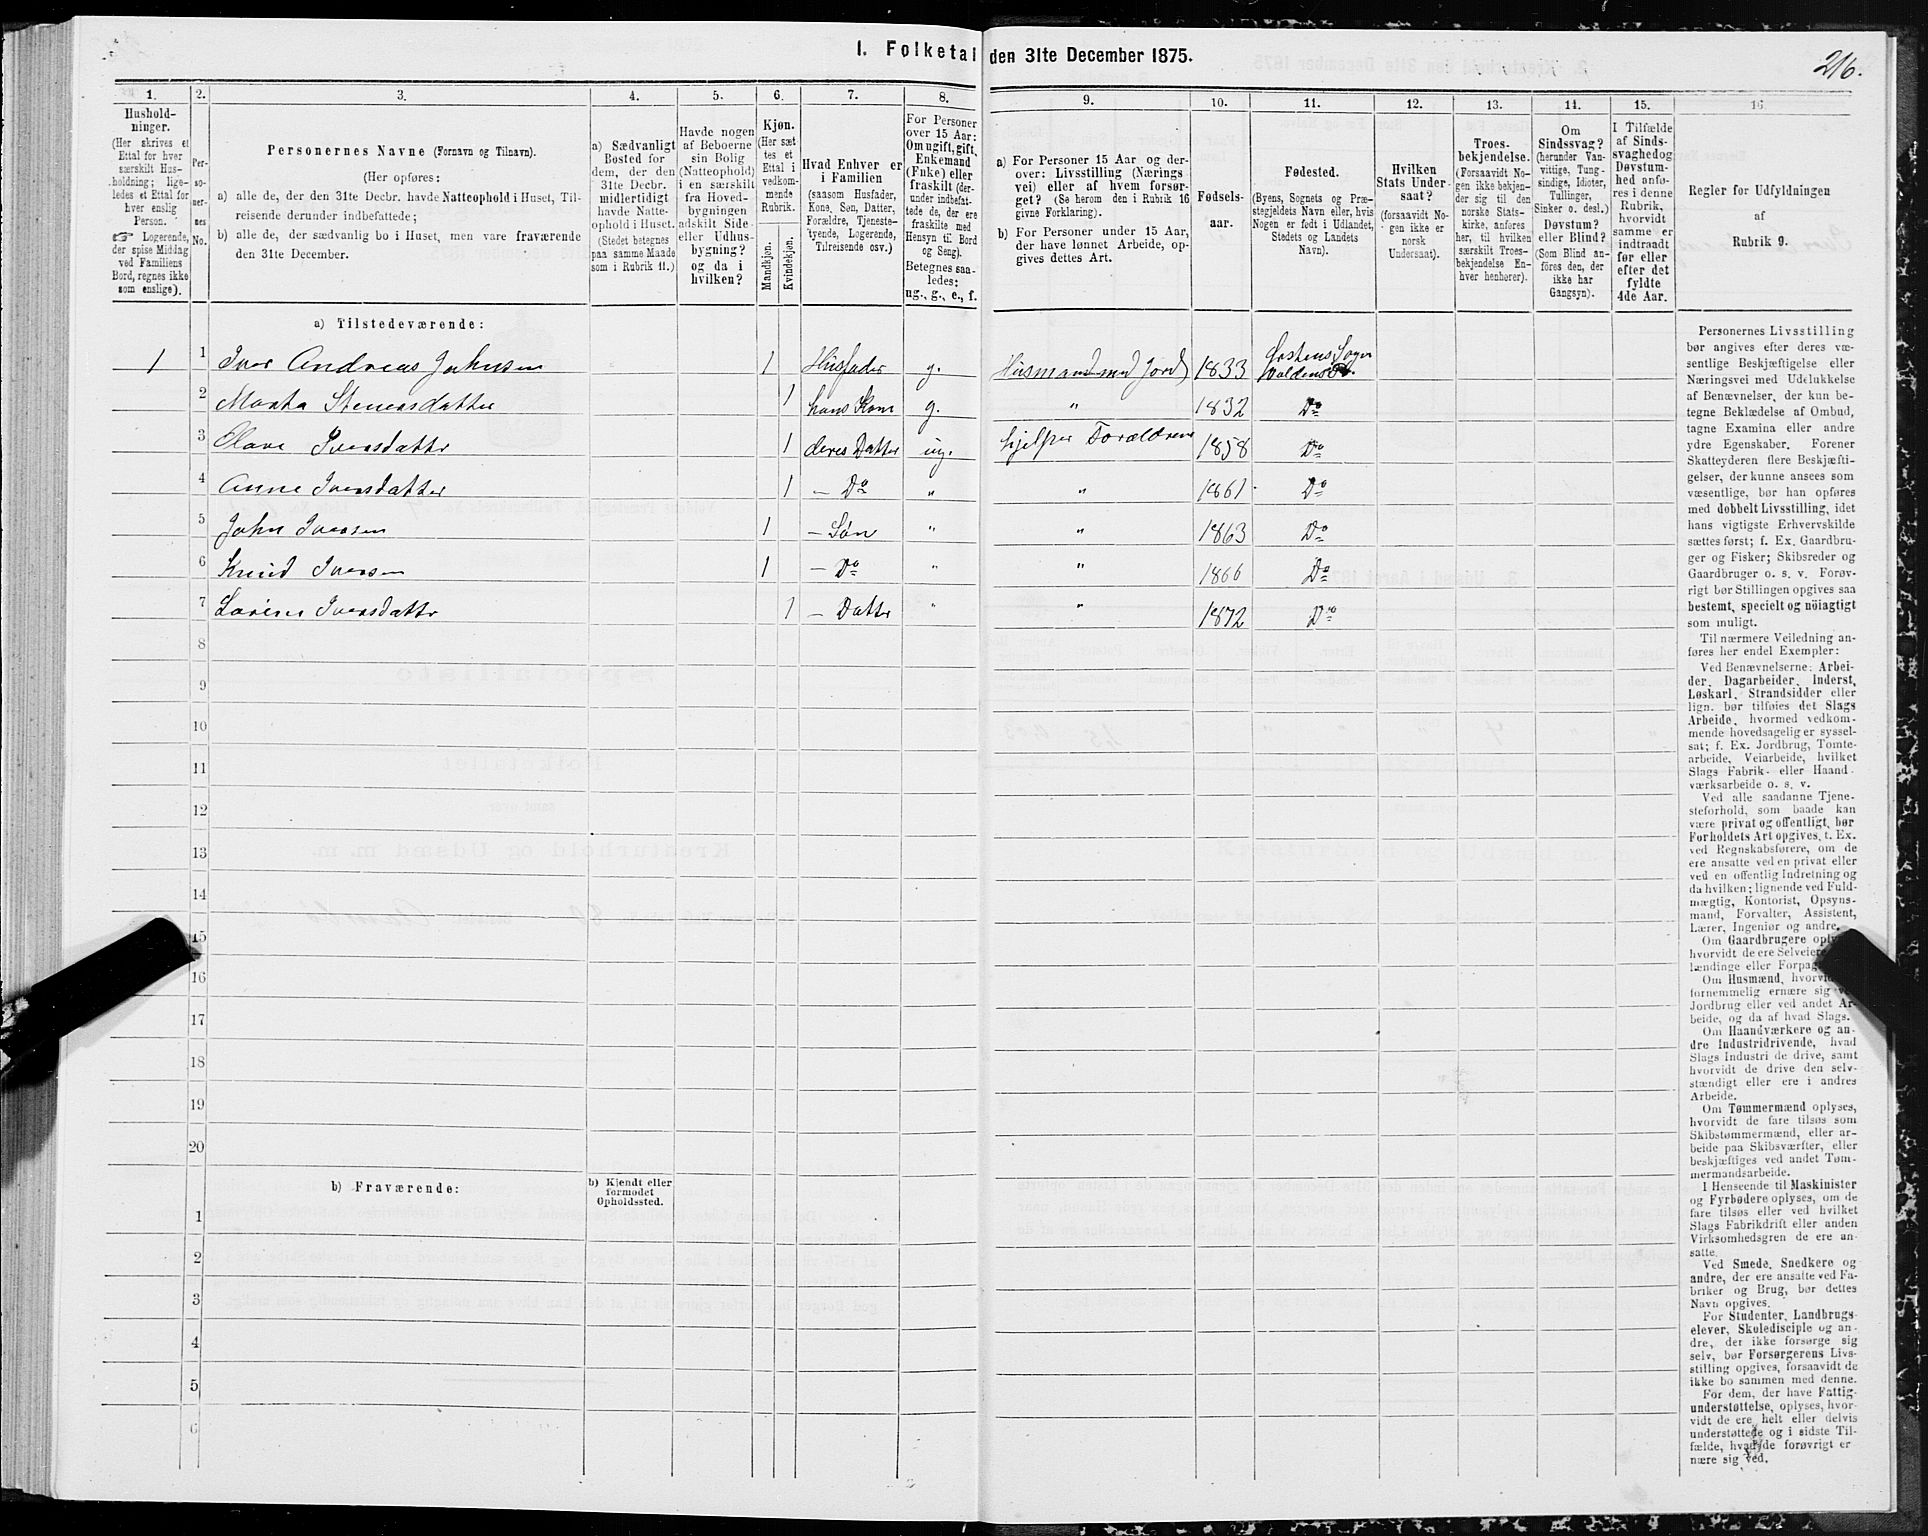 I. Folketal den 31te December 1875.
216.
1.
Hushold-
ninger.
(Her skrives et
Ettal for hver
særskilt Hus-
holdning; lige-
ledes et Ettal for
hver enslig
Person.
☞ Logerende,
der spise Middag
ved Familiens
Bord, regnes ikke
som enslige).
2.
Per-
so-
ner-
nes
No.
3.
Personernes Navne (Fornavn og Tilnavn).
(Her opføres:
a) alle de, der den 31te Decbr. havde Natteophold i Huset, Til-
reisende derunder indbefattede;
b) alle de, der sædvanlig bo i Huset, men vare fraværende
den 31te December.
4.
a) Sædvanligt
Bosted for
dem, der den
31te Decbr.
midlertidigt
havde Natte-
ophold i Huset.
(Stedet betegnes
paa samme Maade
som i Rubrik 11.)
5.
Havde nogen
af Beboerne
sin Bolig
(Natteophold)
i en særskilt
fra Hoved-
bygningen
adskilt Side-
eller Udhus-
bygning?
og da i
hvilken?
6.
Kjøn.
(Her sæt-
tes et
Ettal i
vedkom-
mende
Rubrik.
Mandkjøn.
Kvindekjøn.
7.
Hvad Enhver er
i Familien
(saasom Husfader,
Kone, Søn, Datter,
Forældre, Tjeneste-
tyende, Logerende,
Tilreisende osv.)
8.
For Personer
over 15 Aar:
Om ugift, gift,
Enkemand
(Enke) eller
fraskilt (der-
under indbefat-
tede de, der ere
fraskilte med
Hensyn til Bord
og Seng).
Betegnes saa-
ledes:
ug., g., e., f.
9.
a) For Personer 15 Aar og der-
over: Livsstilling (Nærings-
vei) eller af hvem forsør-
get? (Se herom den i Rubrik 16
givne Forklaring).
b) For Personer under 15 Aar,
der have lønnet Arbeide, op-
gives dettes Art.
10.
Fødsels-
aar.
11.
Fødested.
(Byens, Sognets og Præ-
stegjeldets Navn eller, hvis
Nogen er født i Udlandet,
Stedets og Landets
Navn).
12.
Hvilken
Stats Under-
saat?
(forsaavidt No-
gen ikke er
norsk
Undersaat).
13.
Troes-
bekjendelse.
(Forsaavidt No-
gen ikke bekjen-
der sig til den
norske Stats-
kirke, anføres
her, til hvilken
særskilt Troes-
bekjendelse En-
hver henhører).
14.
Om
Sindssvag?
(herunder Van-
vittige, Tung-
sindige, Idioter,
Tullinger,
Sinker o. desl.)
Døvstum?
eller Blind?
(Som Blind an-
føres den, der
ikke har
Gangsyn).
15.
I Tilfælde
af Sinds-
svaghed og
Døvstum-
hed anfø-
res i denne
Rubrik,
hvorvidt
samme er
indtraadt
før eller
efter det
fyldte
4de Aar.
16.
Regler for Udfyldningen
af
Rubrik 9.
a) Tilstedeværende:
1 1 Iver Andreas Johnsen 1 Husfader g. Husmand med Jord 1833
2 Marta Steinersdatter 1 hans Kone g. " 1832 Do
3 Olave Iversdatter 1 deres Datter ug. hjelper Forældrene 1858 Do
4 Anne Iversdatter 1 – Do " " 1861 Do
5 John Iversen 1 – Søn " " 1863 Do
6 Knud Iversen 1 – Do " " 1866 Do
7 Lovise Iversdatter 1 – Datter " " 1872 Do
8
9
10
11
12
13
14
15
16
17
18
19
20
b) Fraværende:
b) Kjendt eller
formodet
Opholdssted.
1
2
3
4
5
6
Personernes Livsstilling
bør angives efter deres væ-
sentlige Beskjæftigelse eller
Næringsvei med Udelukkelse
af Benævnelser, der kun be-
tegne Beklædelse af Ombud,
tagne Examina eller andre
ydre Egenskaber. Forener
Skatteyderen flere Beskjæfti-
gelser, der kunne ansees som
væsentlige, bør han opføres
med dobbelt Livsstilling, idet
hans vigtigste Erhvervskilde
sættes først; f. Ex. Gaardbru-
ger og Fisker; Skibsreder og
Gaardbruger o. s. v. Forøv-
rigt bør Stillingen opgives saa
bestemt, specielt og nöiagtigt
som muligt.
Til nærmere Veiledning an-
føres her endel Exempler:
Ved Benævnelserne: Arbei-
der, Dagarbeider, Inderst,
Løskarl, Strandsidder eller
lign. bør tilføies det Slags
Arbeide, hvormed vedkom-
mende hovedsagelig er syssel-
sat; f. Ex. Jordbrug, Tomte-
arbeide, Veiarbeide, hvilket
Slags Fabrik- eller Haand-
værksarbeide o. s. v.
Ved alle saadanne Tjene-
steforhold, som baade kan
være privat og offentligt, bør
Forholdets Art opgives, t. Ex.
ved Regnskabsførere, om de
ere ansatte ved en privat eller
ved en offentlig Indretning og
da hvilken; lignende ved Fuld-
mægtig, Kontorist, Opsyns-
mand, Forvalter, Assistent,
Lærer, Ingeniør og andre.
Om Gaardbrugere
hvorvidt de ere
lændinge eller
Om Husmænd,
fornemmelig ernære sig
Jordbrug eller ved andet Ar-
beide, og da af hvad Slags.
Om Haandværkere og an-
dre Industridrivende, hvad
Slags Industri de drive, samt
hvorvidt de drive den selv-
stændigt eller ere i andres
Arbeide.
Om Tømmermænd oplyses,
hvorvidt de fare tilsøs som
Skibstømmermænd, eller ar-
beide paa Skibsværfter, eller
beskjæftiges ved andet Tøm-
mermandsarbeide.
I Henseende til Maskinister
og Fyrbødere oplyses, om de
fare tilsøs eller ved hvilket
Slags Fabrikdrift eller anden
Virksomhedsgren de ere an-
satte.
Ved Smede, Snedkere og
andre, der ere ansatte ved Fa-
briker og Brug, bør dettes
Navn opgives.
For Studenter, Landbrugs-
elever, Skoledisciple og an-
dre, der ikke forsørge sig
selv, bør Forsørgerens Livs-
stilling opgives, forsaavidt de
ikke bo sammen med denne.
For dem, der have Fattig-
understøttelse, oplyses, hvor-
vidt de ere helt eller delvis
understøttede og i sidste Til-
fælde, hvad de forøvrigt er
nære sig ved.